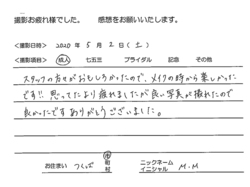 撮影お疲れ様でした。　感想をお願いいたします。
<撮影日時>　2020年 5月 2日(土)
<撮影項目>　成人　七五三　ブライダル　記念　その他
スタッフの方がおもしろかったので、メイクの時から楽しかった
です!! 思ってたより疲れましたが良い写真が撮れたので
良かったです ありがとうございました。
お住まい　つくば　市　町　村　ニックネーム　イニシャル　M.M